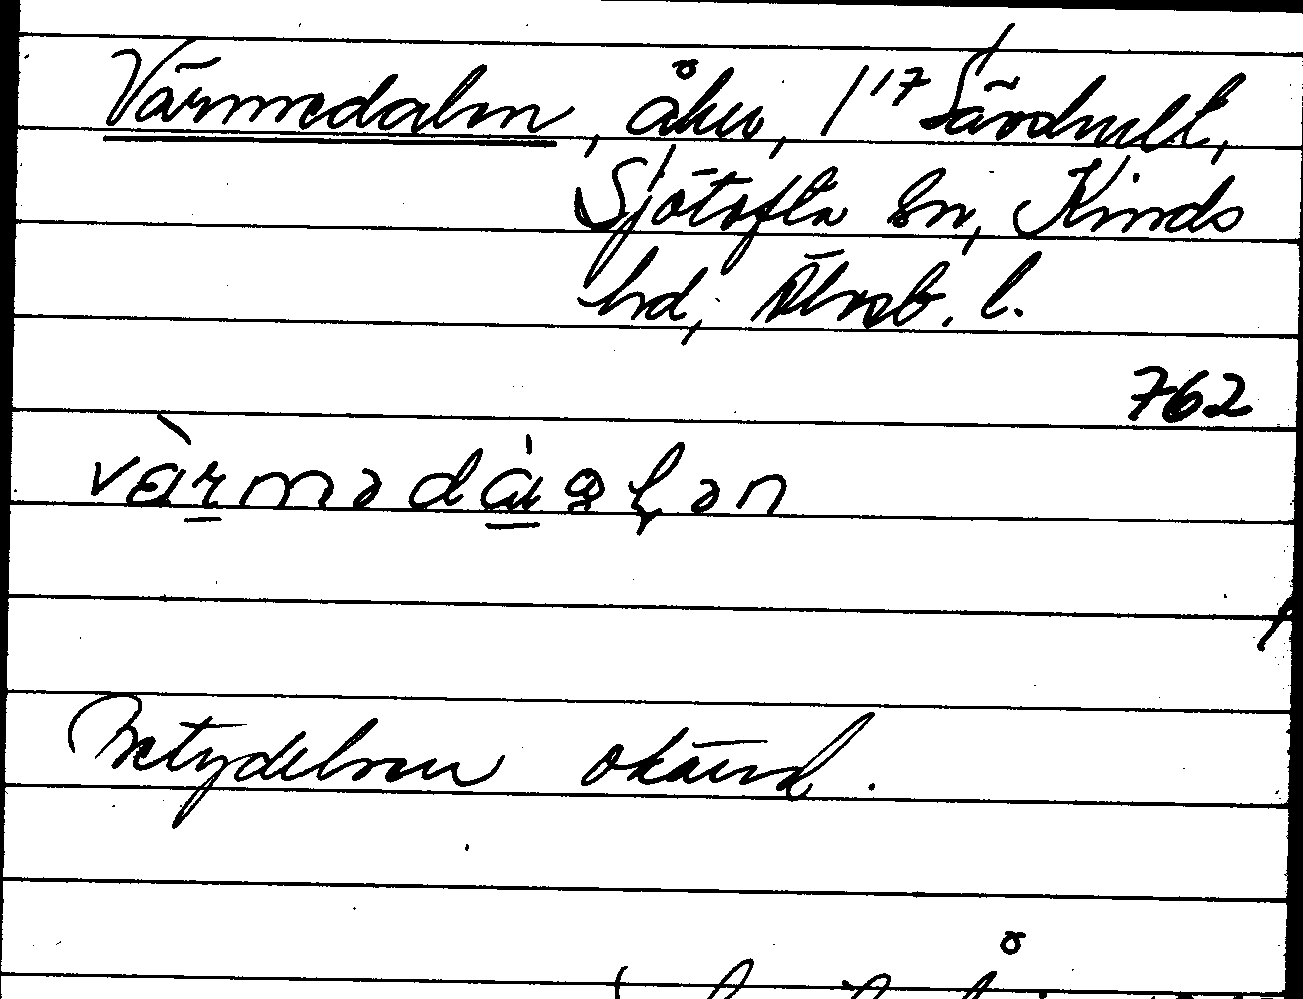 Värmedalen, åker, 1/17 Särdhult,
Sjötofta sn, Kinds
hd, Älvsb. l.
762
vàrmədáɷlən
Betydelsen okänd.